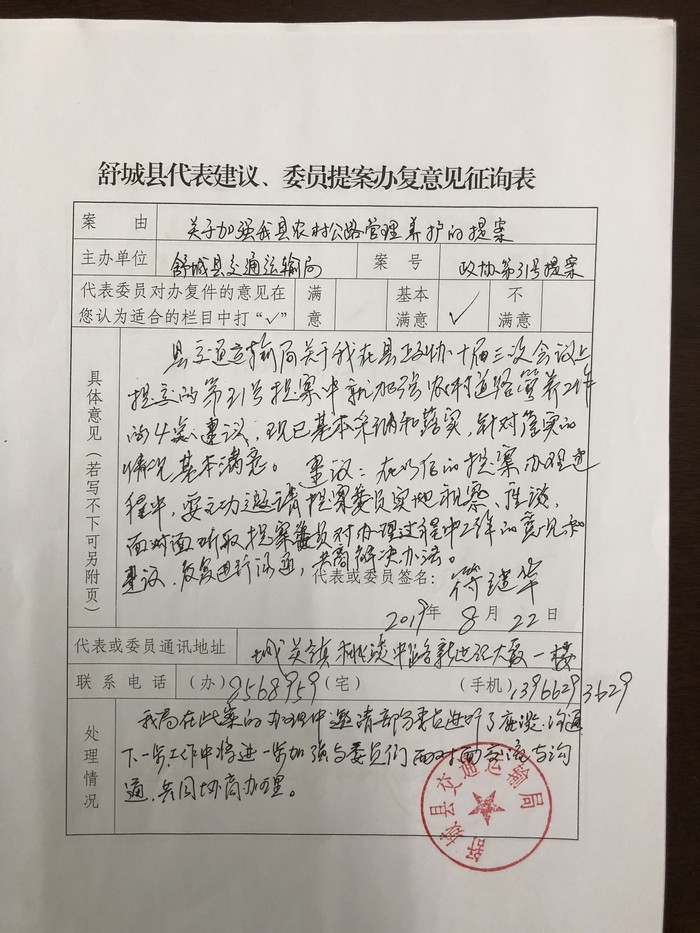 舒城县代表建议、委员提案办复意见征询表
案由 关于加强我县农村公路管理养护的提案
主办单位 舒城县交通运输局 案号 政协第31号提案
代表委员对办复件的意见在 满 基本 不
您认为适合的栏目中打“√” 意 满意 √ 满意
具体意见（若写不下可另附页）
县交通运输局关于我在县政协十届三次会议上
提交的第31号提案中就加强农村道路管养工作
的4点建议，现已基本采纳和落实，针对落实的
情况基本满意。 建议：在以后的提案办理过
程中，要主动邀请提案委员实地视察、座谈，
面对面听取提案委员对办理过程中工作的意见和
建议，反复进行沟通，共商解决办法。
代表或委员签名： 符继华
2019年 8月 22日
代表或委员通讯地址 城关镇桃溪中路新世纪大厦一楼
联系电话 （办）2568959（宅） （手机）13966293629
处理情况
我局在此案的办理中邀请部分委员进行了座谈、沟通
下一步工作中将进一步加强与委员们面对面交流与沟
通，共同协商办理。
舒城县交通运输局